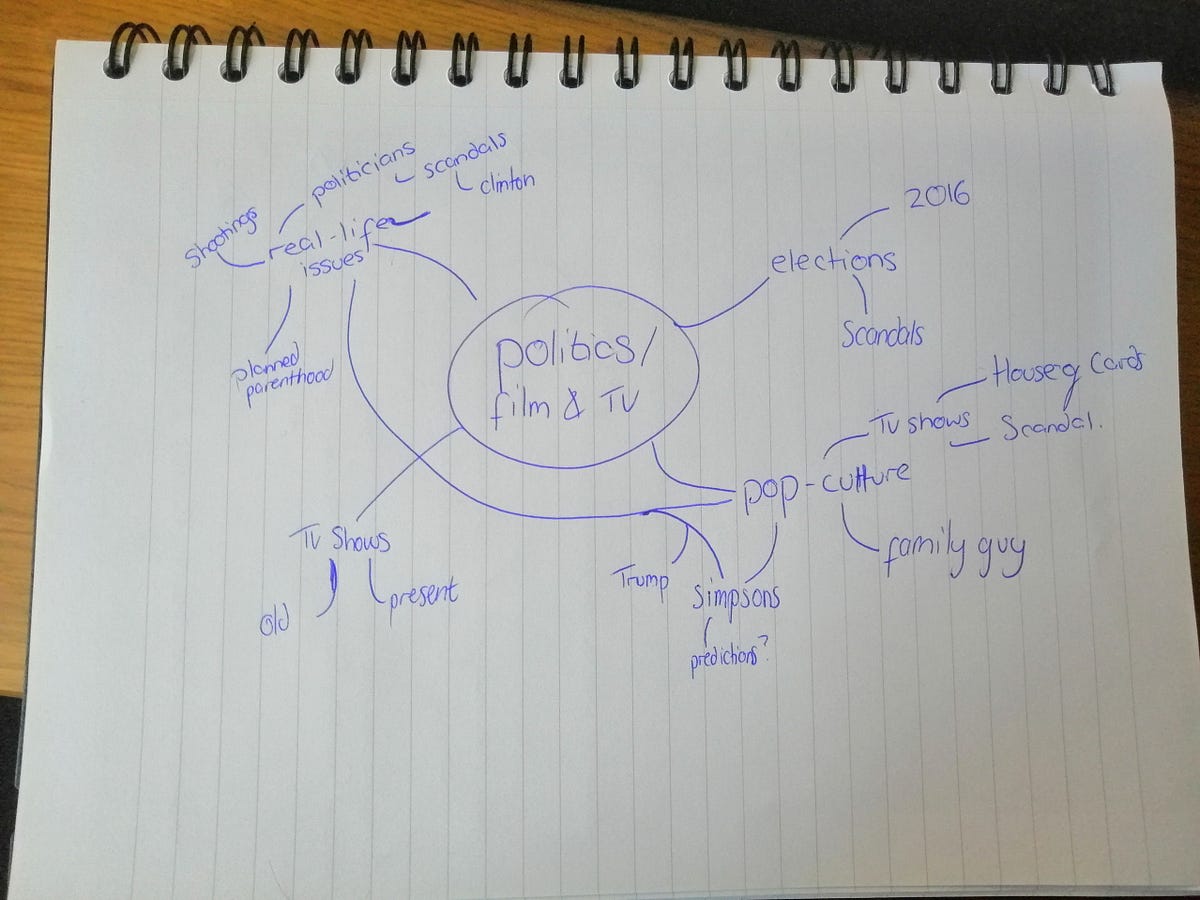 politicians
scandals
clinton
shootings
real-life
issues
planned
parenthood
politics/
film & TV
2016
elections
Scandals
House of Cards
TV shows
Scandal.
pop-culture
family guy
TV Shows
old
present
Trump
Simpsons
predictions?